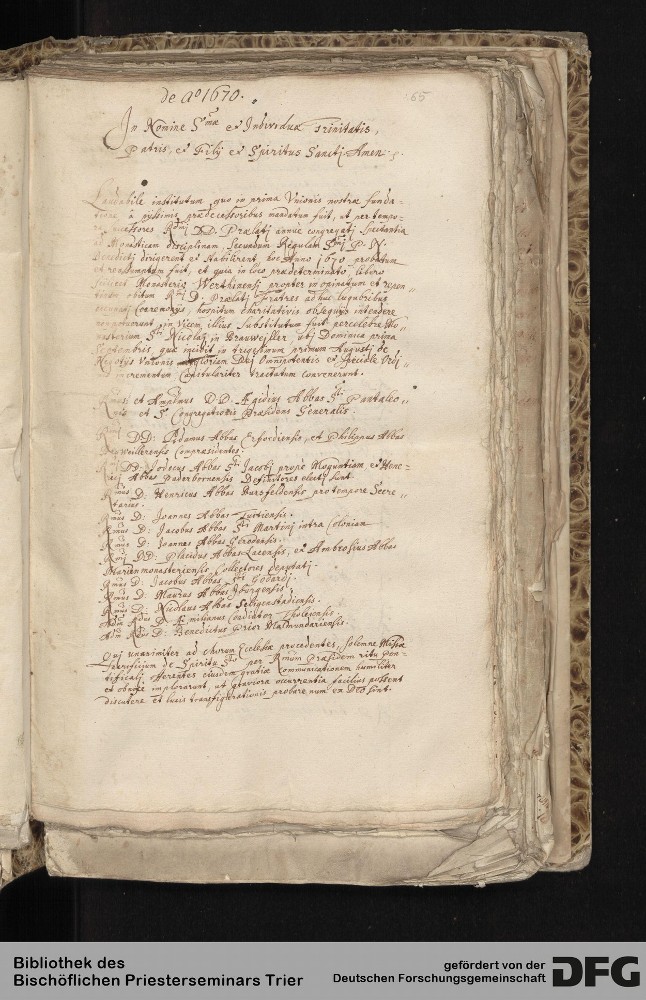 de Aº 1670.
65
In Nomine Smæ et Individuæ Trinitatis,
Patris, et Filij et Spiritus Sanctj. Amen.
Laudabile institutum, quo in prima Unionis nostræ funda-
tione à pijssimis prædecessoribus mandatum fuit, ut per tempo-
successores Rdmj DD. Prælatj annue congregatj spectantia
Monasticam disciplinam, secundum Regulam Smj P. N.
Benedictj dirigerent et stabilirent, hoc Anno 1670 probatum
et reassumptum fuit, et quia in loco prædeterminato, libero
Monasterio Werthinensi propter inopinatum et repen-
obitum Rmj D. Prælatj Fratres adhuc lugubribus
Coeremonijs, hospitum charitativis obsequijs intendere
non potuerunt, in vicem illius substitutum fuit percelebre Mo-
nasterium Stj Nicolaj in Brauweiller utj Dominica prima
Septembris, quæ incidit in trigesimum primum Augustj de
Unionis Gloriam Dej Omnipotentis et
incrementum Capitulariter tractatum convenerunt.
Rmus et Ampdmus D.D. Ægidius Abbas Stj Pantaleo-
nis et Sæ Congregationis Præsidens Generalis.
Rmj DD: Adamus Abbas Erfordiensis, et Philippus Abbas
Brauwillerensis Compræsidentes.
Rmj DD: Jodocus Abbas Stj Jacobj prope Moguntiam et Hen-
ricj Abbas Paderbornensis Definitores electj sunt.
Rmus D: Henricus Abbas Bursfeldensis pro tempore Secre-
tarius.
Rmus D: Joannes Abbas Tuitiensis.
Rmus D: Jacobus Abbas Stj Martinj intra Coloniam
Rmus D: Joannes Abbas Gerodensis.
Rmj DD: Placidus Abbas Lacensis, et Ambrosius Abbas
Marienmonasteriensis Collectores deputatj.
Rmus D: Jacobus Abbas Stj Godardj.
Rmus D: Maurus Abbas Iburgensis.
Rmus D: Nicolaus Abbas Seligenstadiensis.
Adm Rdus D: Æmilianus Coadiutor Tholeiensis.
Adm Rdus D: Benedictus Prior Malmundariensis.
Quj unanimiter ad chorum Ecclesiæ procedentes, solemne Missæ
sacrificium de Spiritu Sto per Rmum Præsidem ritu Pon-
tificalj offerentes eiusdem gratiæ Communicationem humiliter
et obnixe implorarunt, ut graviora occurrentia facilius possent
discutere et lucis transfigurationis probare num ex Deo sint.
Bibliothek des
Bischöflichen Priesterseminars Trier
gefördert von der
Deutschen Forschungsgemeinschaft
DFG